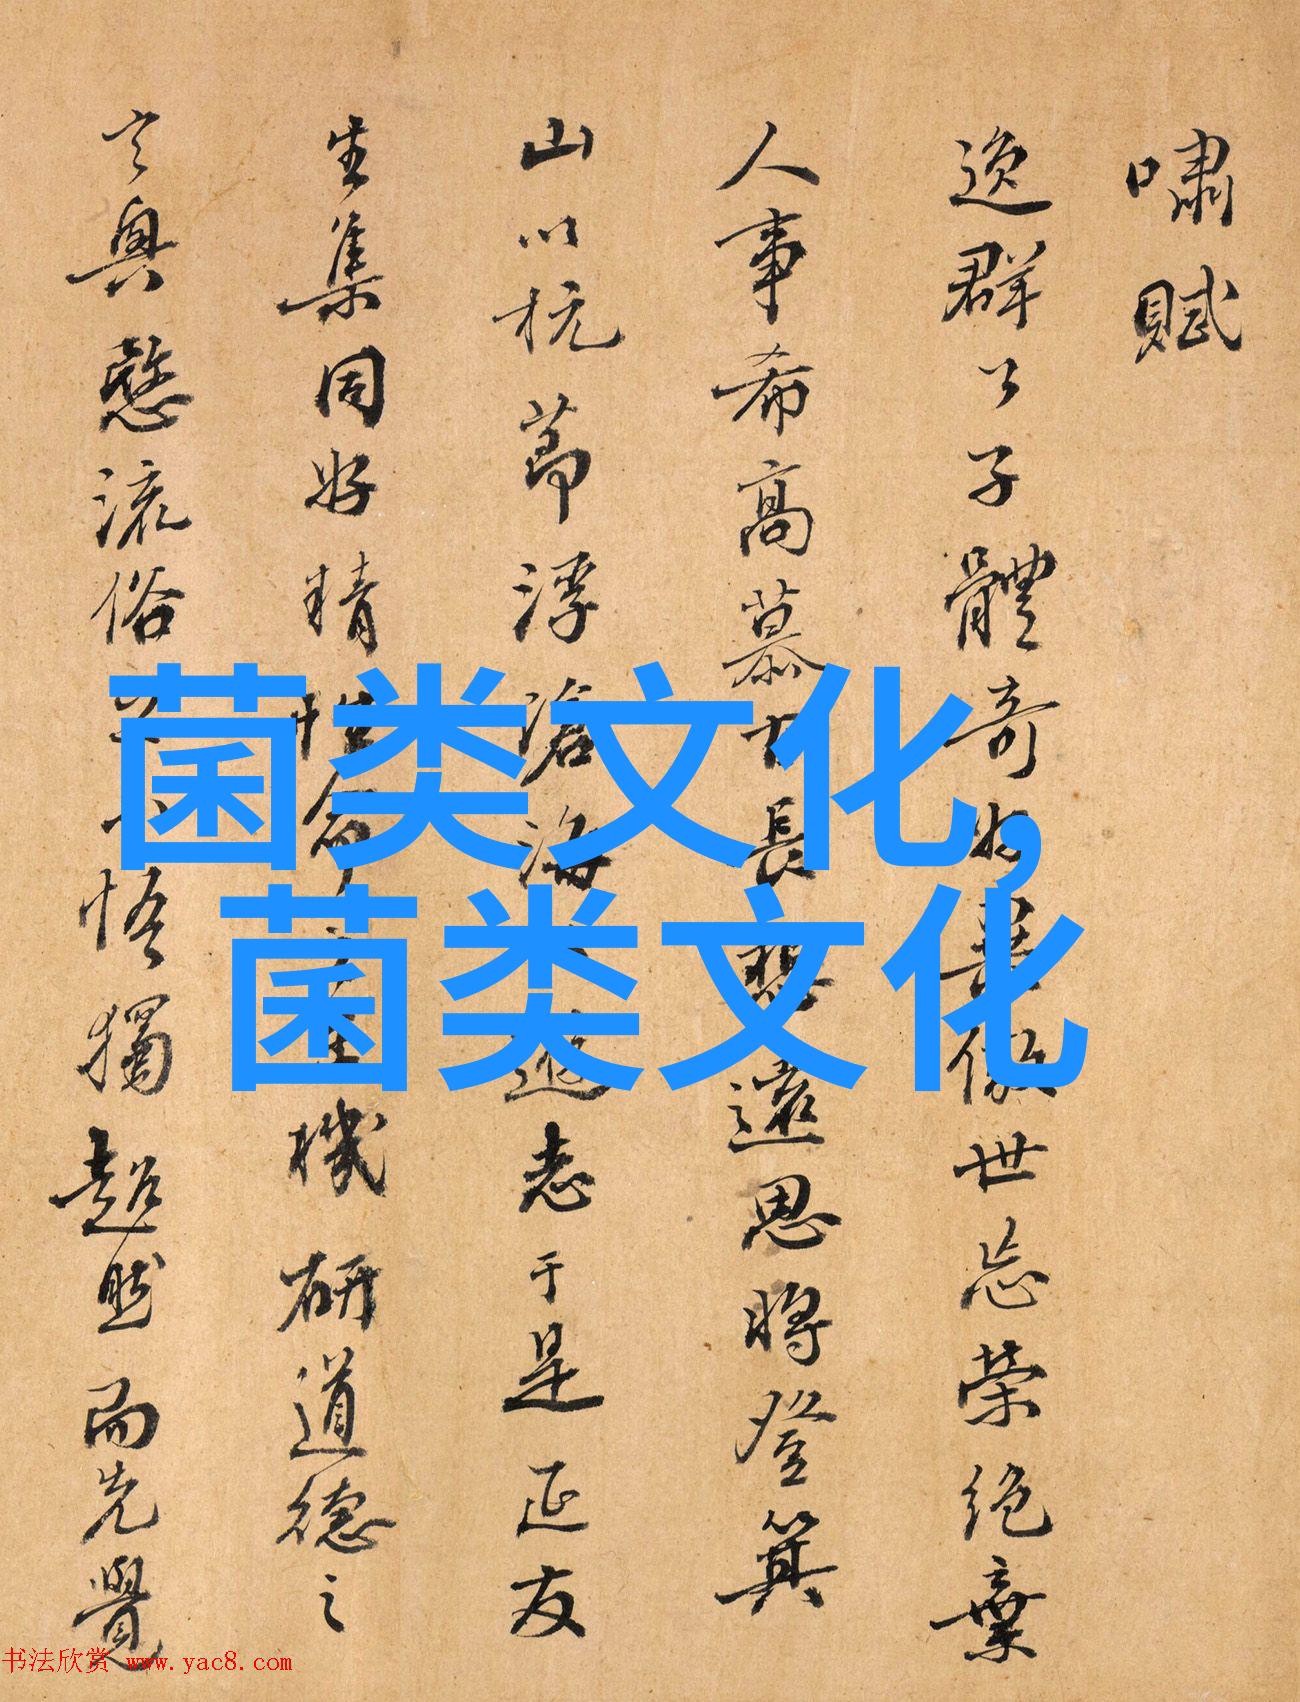 嘯賦
逸群公子體奇好異傲世忘榮絕棄
人事希高慕古長想遠思將登箕
山以抗節浮滄海以遊志于是延友
生集同好精性命之至機研道德之
玄奧愍流俗之未悟獨超然而先覺
菌类文化,
菌类文化
书法欣赏 www.yac8.com